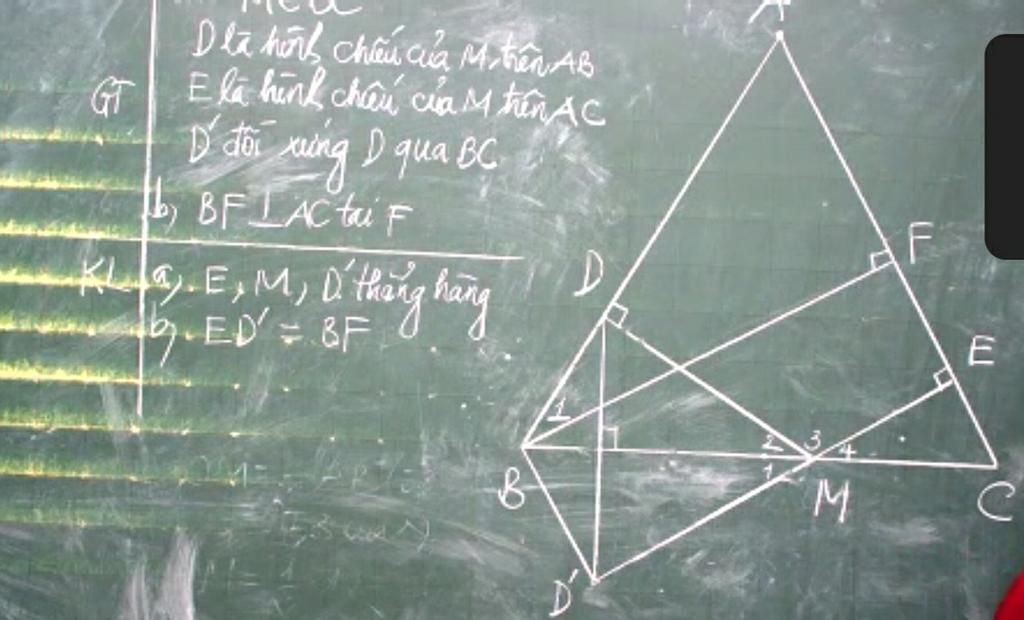 M ∈ BC
D là hình chiếu của M trên AB
GT E là hình chiếu của M trên AC
D' đối xứng D qua BC
b) BF ⊥ AC tại F
KL a) E, M, D' thẳng hàng
b) ED' = BF
A
D
F
E
1
2 3 4
1
B
M
C
D'